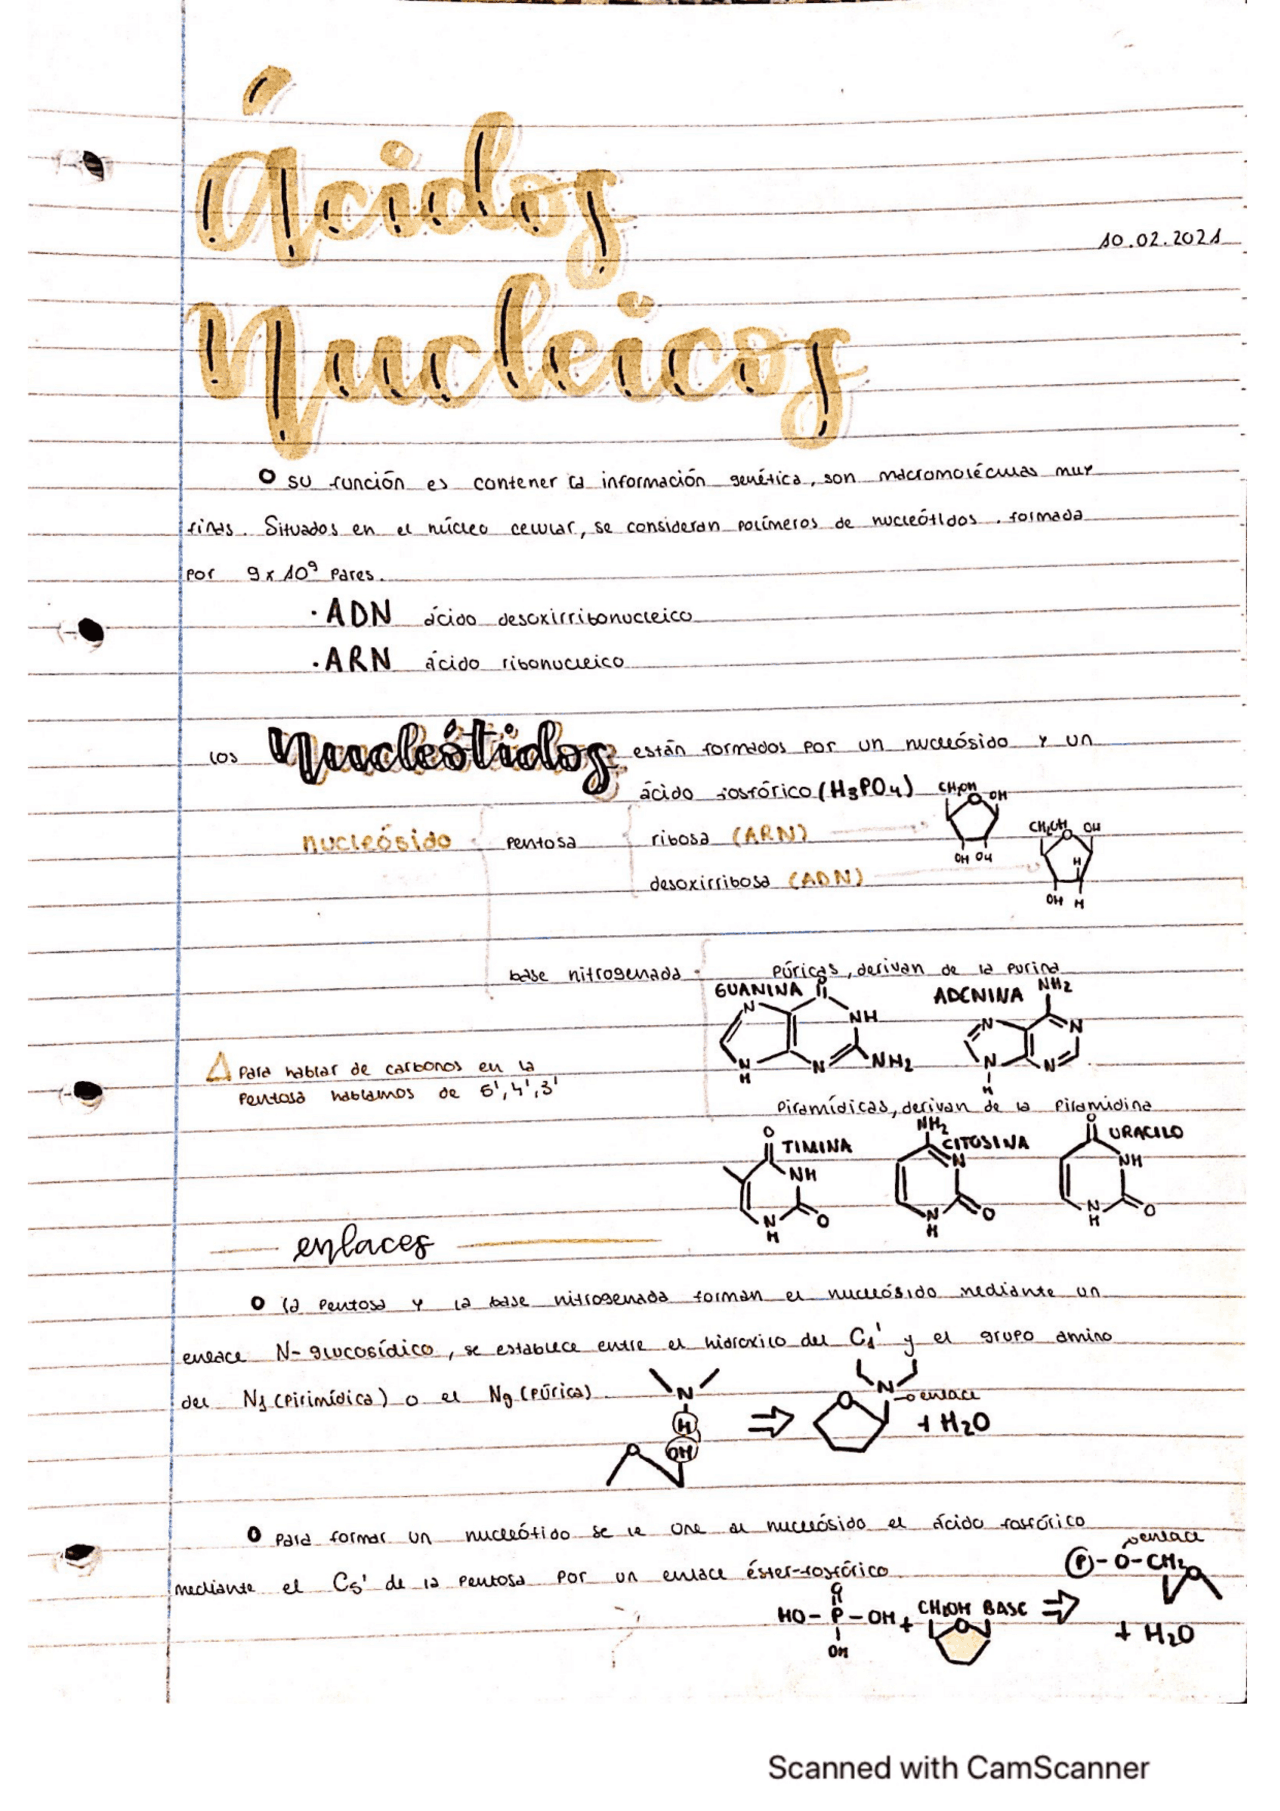 Ácidos
10.02.2021
Nucleicos
su función es contener la información genética, son macromoléculas muy
finas. Situados en el núcleo celular, se consideran polímeros de nucleótidos. formada
por 9x10⁹ pares.
· ADN ácido desoxirribonucleico
· ARN ácido ribonucleico
los Nucleótidos están formados por un nucleósido y un
ácido fosfórico (H3PO4)
CH2OH OH
nucleósido pentosa ribosa (ARN)
CH2OH OH
OH OH
desoxirribosa (ADN)
H
OH H
base nitrogenada púricas, derivan de la purina
GUANINA O ADENINA NH2
N NH N N
N N NH2 N N
H H
△ Para hablar de carbonos en la
pentosa hablamos de 5', 4', 3'
Piramídicas, derivan de la piramidina
O TIMINA NH2 CITOSINA O URACILO
NH N NH
N O N O N O
H H H
enlaces
la pentosa y la base nitrogenada forman el nucleósido mediante un
enlace N-glucosídico, se establece entre el hidroxico del C1' y el grupo amino
del N1 (pirimídica) o el N9 (púrica)
N N enlace
H O + H2O
O OH
Para formar un nucleótido se le une al nucleósido el ácido fosfórico
mediante el C5' de la pentosa por un enlace éster-fosfórico
enlace
P - O - CH2 O
O
HO - P - OH + CH2OH BASE ⇒
OH O
+ H2O
Scanned with CamScanner